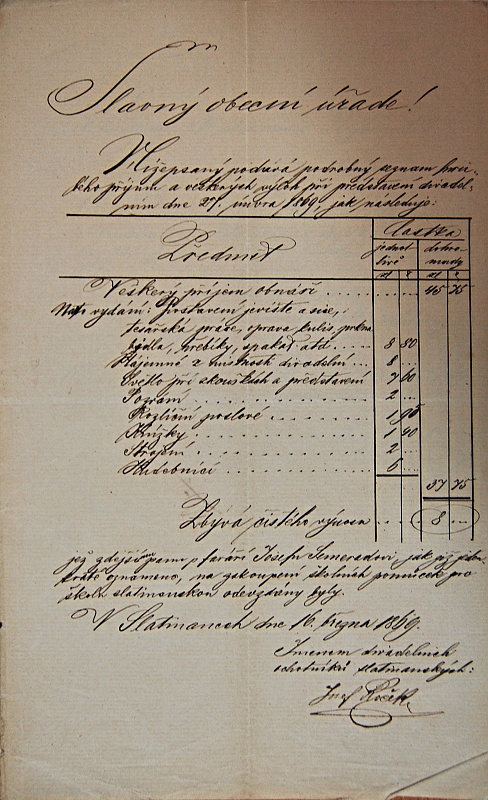 Slavný obecní úřade!
Nížepsaný podává podrobný seznam
příjmu a veškerých výloh při představení divadel-
ním dne 21. února 1869, jak následuje:
Částka
Předmět
jednot- dohro-
livě mady
zl zl
Veškerý příjem obnáší . . . . . . . 45 75
vydání: Postavení jeviště a síce,
Tesařská práce, oprava kulis, prkna
hřebíky, špakat atd. . . 8 80
Nájemné z místnosti divadelní . . 8 . .
Světlo při zkouškách a představení 7
Pozvání . . . . . . . . 2 . .
poslové . . . . . . . 1
Knížky . . . . . . . . 1
Strojení . . . . . . . . 2 . .
Hudebníci . . . . . . . . 6 . .
37 75
Zbývá čistého výnosu . . . . 8 . .
jež zdejšímu panu faráři Josefu Semerádovi, jak již
oznámeno, na zakoupení školních pomůcek pro
školu slatinanskou odevzdány byly.
V Slatinanech dne 16. března 1869.
Jmenem divadelních
ochotníků slatinanských:
Josef